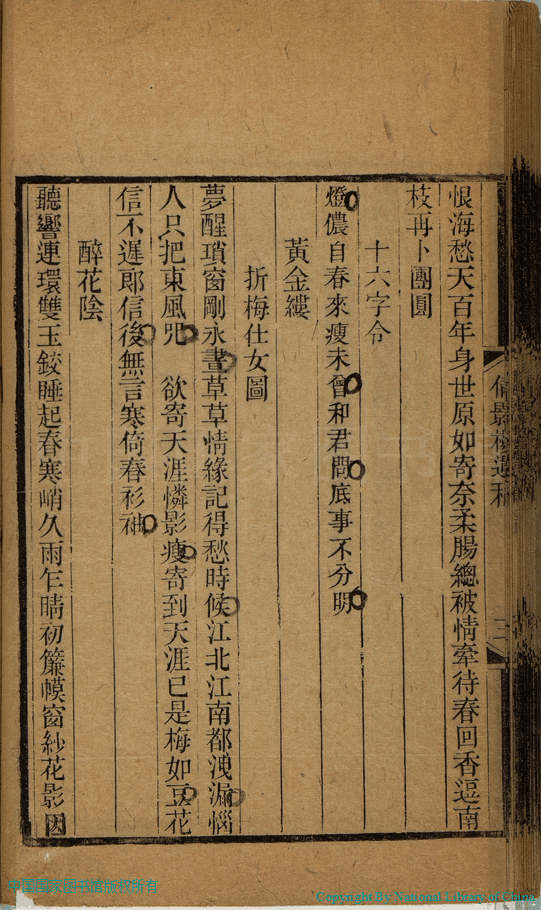 恨海愁天百年身世原如寄奈柔腸總被情牽待春回香逗南
枝再卜團圓
十六字令
燈儂自春來瘦未曾和君問底事不分明
黃金縷
折梅仕女圖
夢醒瑣窗剛永晝草草情緣記得愁時候江北江南都洩漏惱
人只把東風咒　欲寄天涯憐影瘦寄到天涯已是梅如豆花
信不遲郎信後無言寒倚春衫袖
醉花陰
聽響連環雙玉釵睡起春寒峭久雨乍晴初簾幙窗紗花影因
倩影樓遺稿
三
中国国家图书馆版权所有
Copyright By National Library of China